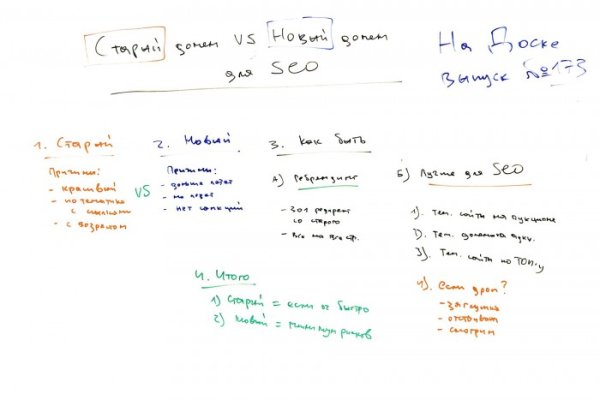 Старый домен VS Новый домен
для SEO
На Доске
выпуск №173
1. Старый
Причины:
- красивый
- по тематике
с ссылками
- с возрастом
VS
2. Новый
Причины:
- дольше
- не
- нет санкций
3. Как быть
А) Ребрендинг
- 301 редирект
со старого
- все на все стр.
Б) Лучше для SEO
1). Тем. сайты на аукционе
2). Тем. домена аукц.
3). Тем. сайты по ТОП-у
4). если дроп?
- заглушка
- отстаивать
- смотрим
4. Итого
1) Старый = если ок быстро
2) Новый = минимум рисков